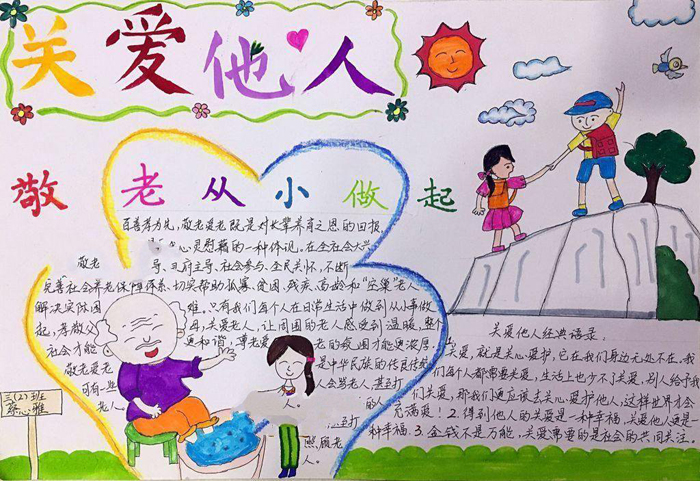 关爱他人
敬老从小做起
百善孝为先，敬老爱老既是对长辈养育之恩的回报
心灵慰藉的一种体现。在全社会大
敬老
导、政府主导、社会参与、全民关怀，不断
完善社会养老保障体系，切实帮助孤寡、贫困、残疾、高龄和“空巢”老人
解决实际困难。只有我们每个人在日常生活中做到从小事做
起，孝敬父母，关爱老人，让周围的老人感受到温暖，整个
社会才能更和谐，尊老爱老的氛围才能更浓厚。
敬老爱老是中华民族的传统传统
可有一些人会骂老人，甚至打
老人。
人。
的人
甚至打
照顾老
人。
三(2)班
蔡心雅
关爱他人经典语录。
关爱，就是关心爱护，它在我们身边无处不在。我
们每个人都需要关爱，生活上也少不了关爱，别人给予我
们关爱，那我们更应该去关心爱护他人，这样世界才会
充满爱！2.得到他人的关爱是一种幸福，关爱他人更是一
种幸福。3.金钱不是万能，关爱需要的是社会的共同关注。